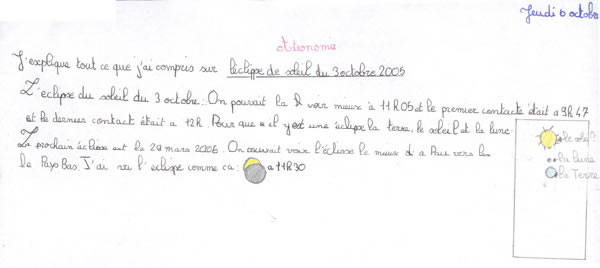 Jeudi 6 octobre
Astronome
J'explique tout ce que j'ai compris sur l'éclipse de soleil du 3 octobre 2005
L'eclipse du soleil du 3 octobre. On pourait la voir mieux à 11H05 et le premier contacte était a 9H47
et le dernier contact était a 12h. Pour que il y est une éclipse la terre, le soleil et la lune
La prochain éclisse est le 29 mars 2006. On pouvait voir l'éclisse le mieux à Pau vers les
le Pays Bas. J'ai vu l'eclipse comme ca : a 11H30
le soleil
la lune
la Terre